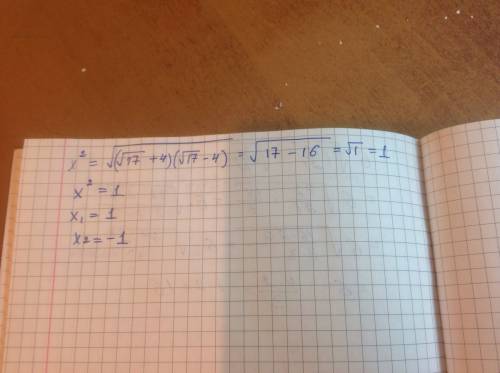 x² = √((√17 + 4)(√17 - 4)) = √(17 - 16) = √1 = 1
x² = 1
x₁ = 1
x₂ = -1